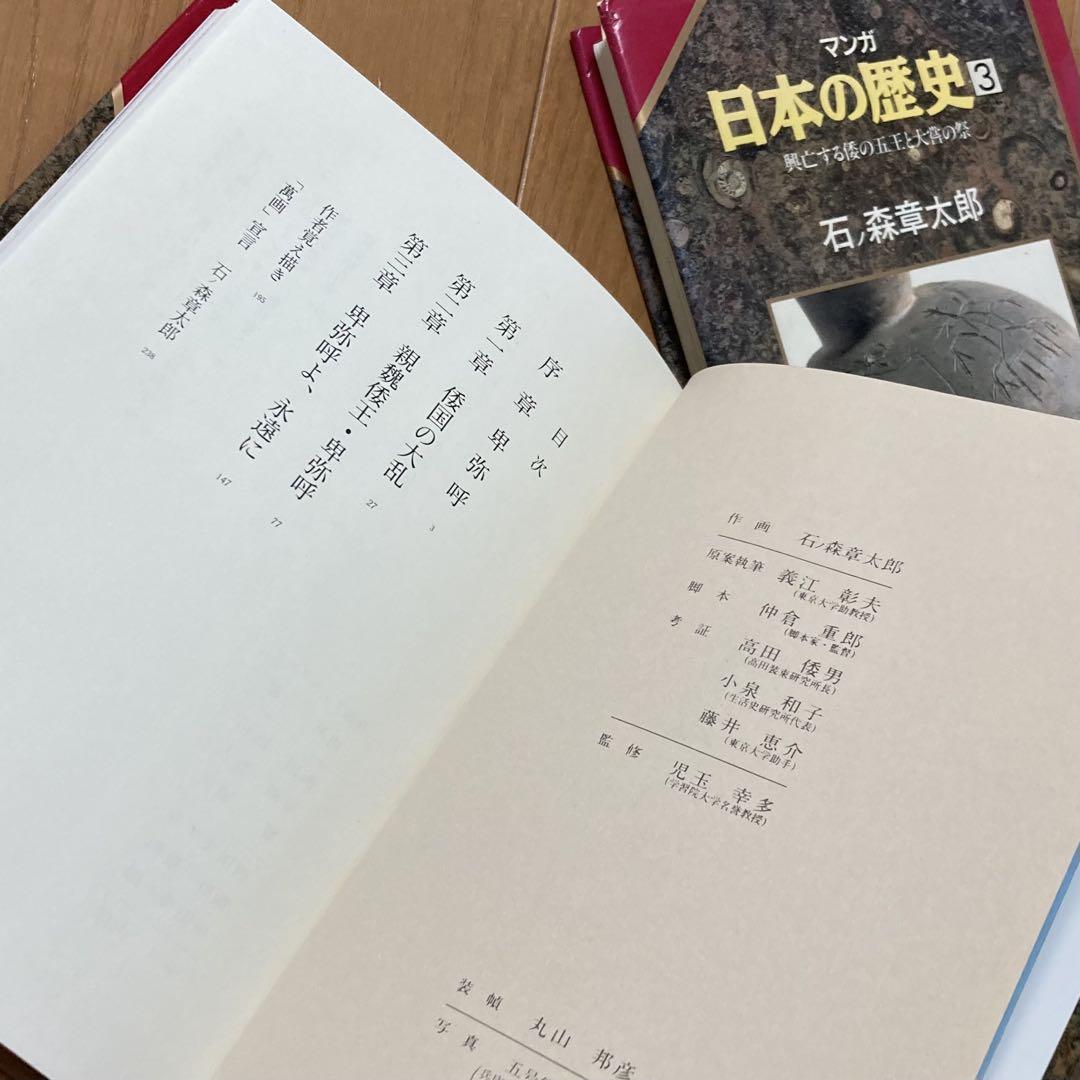 マンガ
日本の歴史3
興亡する倭の五王と大嘗の祭
石ノ森章太郎
目次
序章 卑弥呼 3
第一章 倭国の大乱 27
第二章 親魏倭王・卑弥呼 77
第三章 卑弥呼よ、永遠に 147
作者覚え描き 195
「萬画」宣言 石ノ森章太郎 238
作画 石ノ森章太郎
原案執筆 義江 彰夫
(東京大学助教授)
脚本 仲倉 重郎
(脚本家・監督)
考証 高田 倭男
(高田装束研究所長)
小泉 和子
(生活史研究所代表)
藤井 恵介
(東京大学助手)
監修 児玉 幸多
(学習院大学名誉教授)
装幀 丸山 邦彦
写真